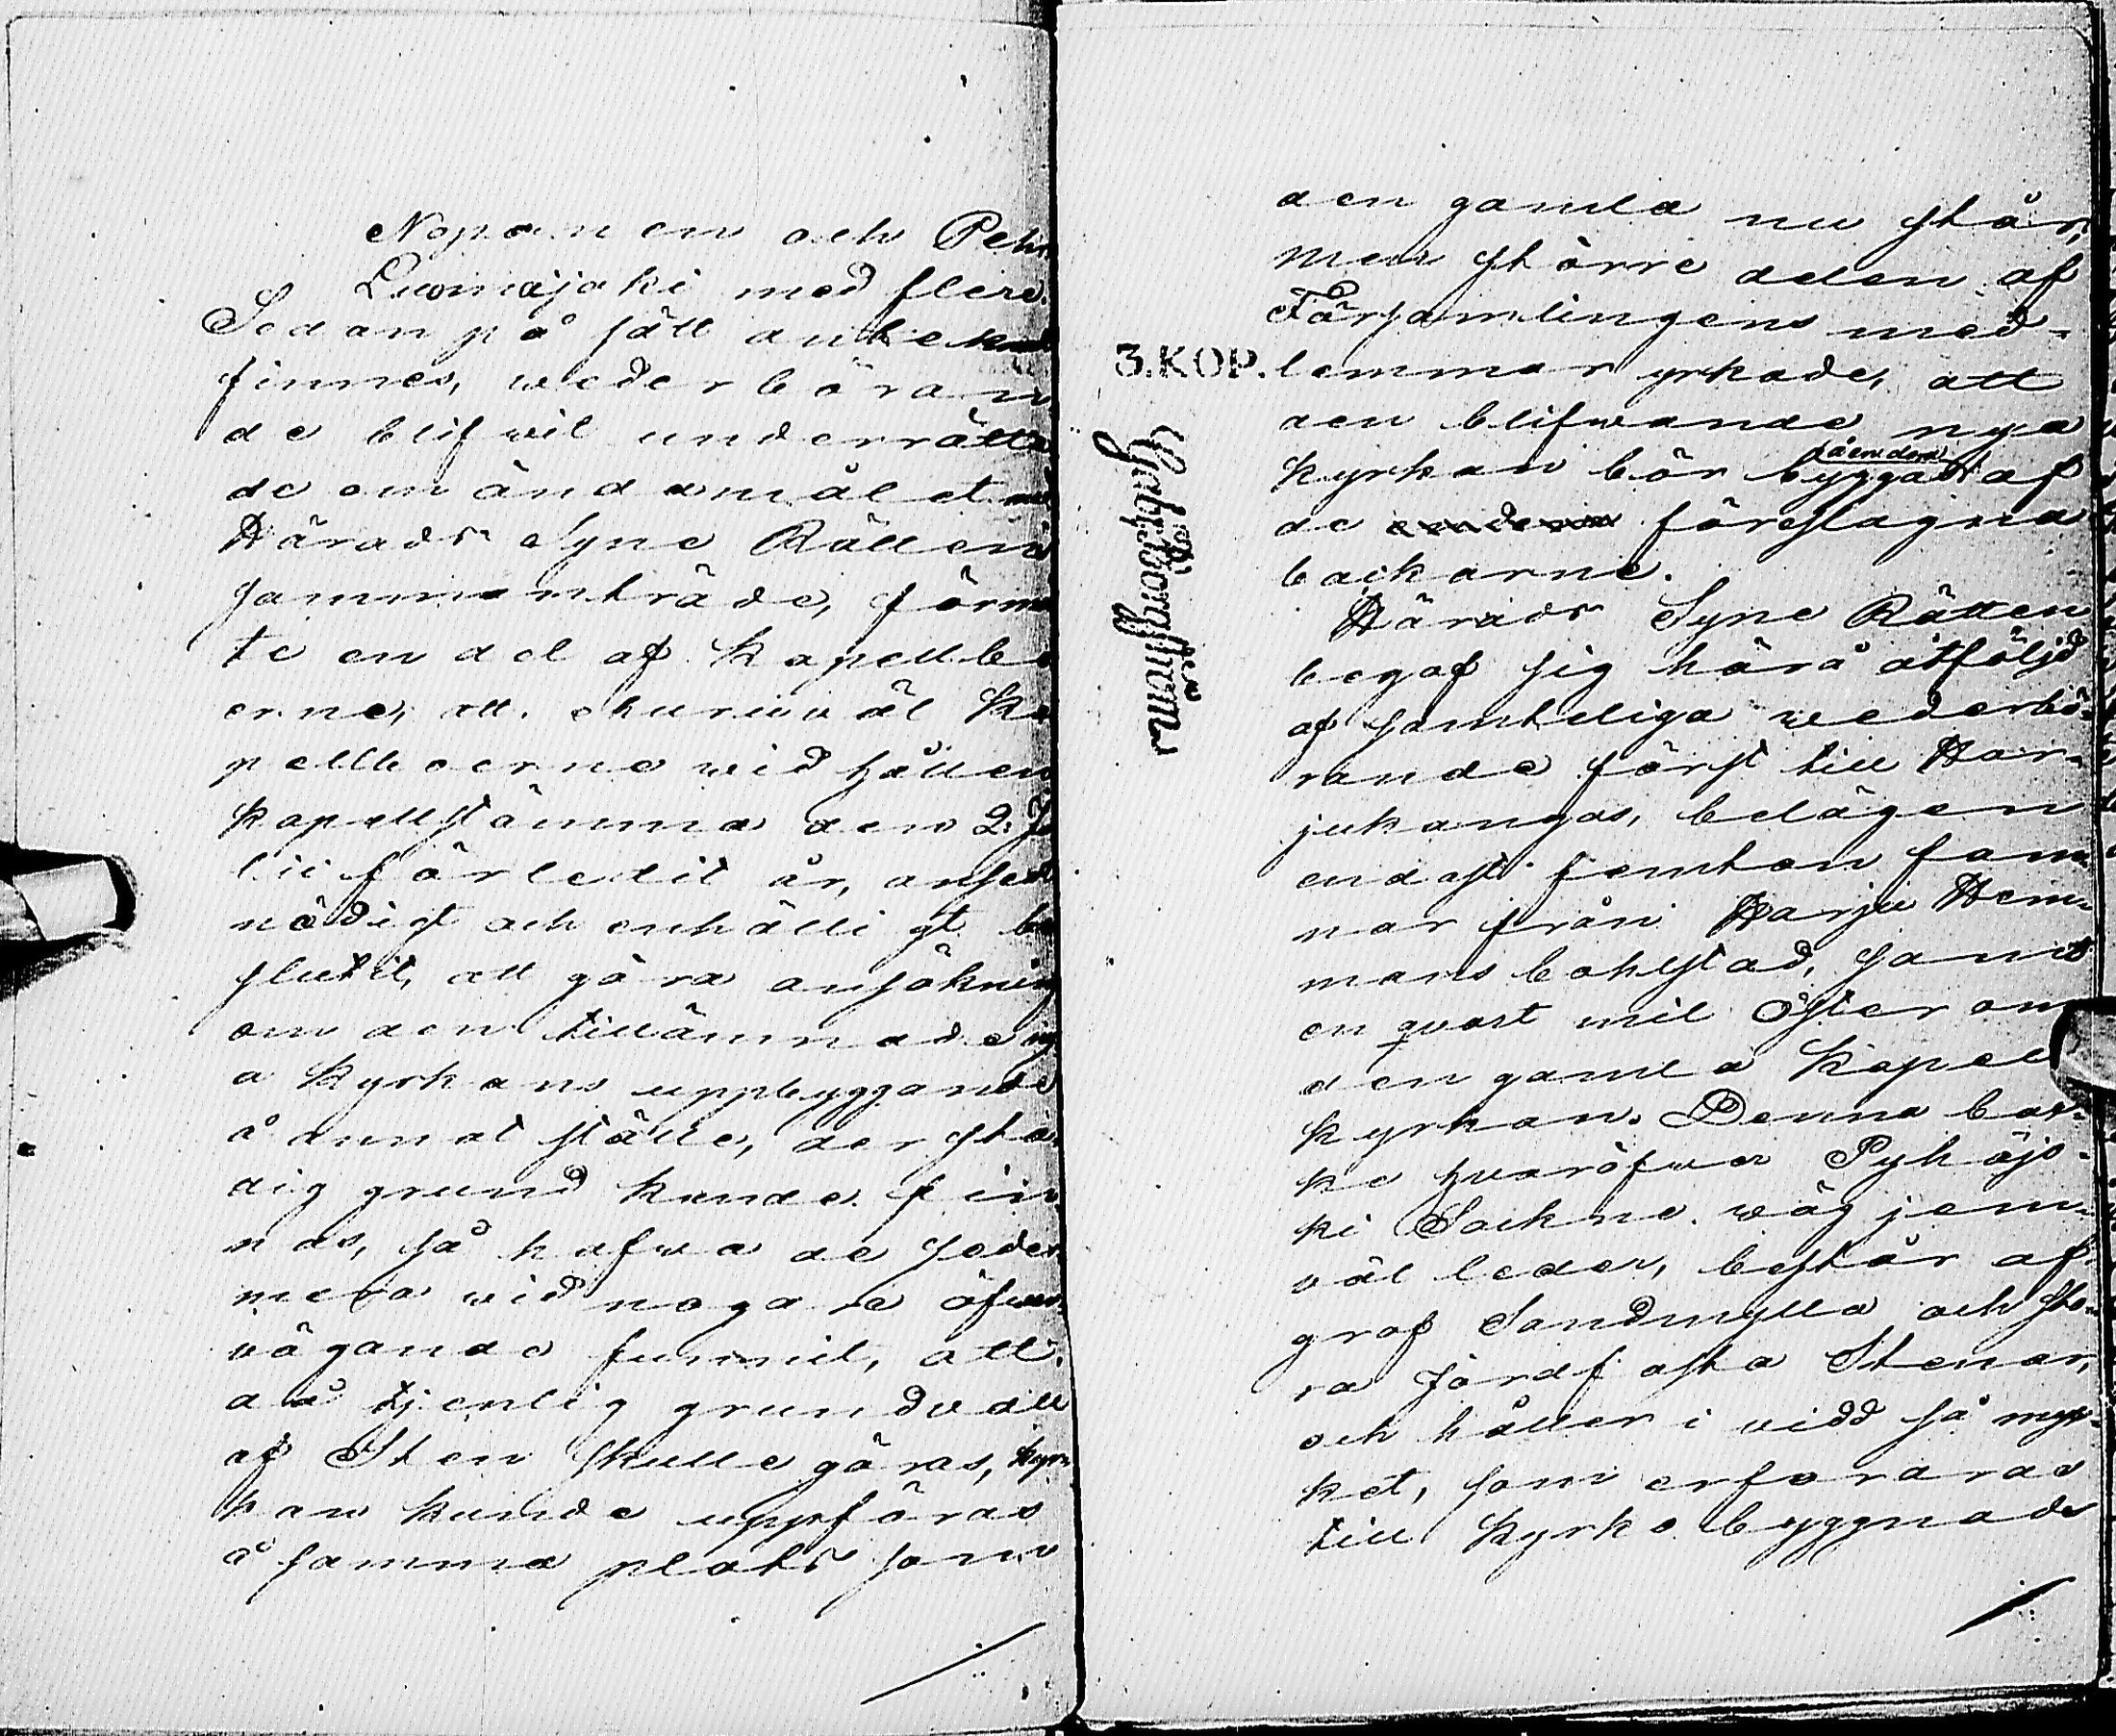 Nopanen och Pehr
Luomajoki med flere.
Sedan på sätt antecknat
finnes, wederböran
de blifwit underrätta
de om ändamålet med
Härads Syne Rättens
sammanträde, förme
te en del af kapellbo
erne, att ehuruwäl Ka
pellboerne wid hållen
kapellstämma den 2 Ju
lii förledit år, ansedt
nödigt och enhälligt be
slutit, att göra ansökning
om den tillämnade ny
a Kyrkans uppbyggande
å annat ställe, der sta
dig grund kunde fin
nas, så hafwa de seder
mera wid nogare öfwer
vägande funnit, att
då tjenlig grundvall
af Sten skulle göras, kyr
kan kunde uppföras
å samma plats som
den gamla nu står,
men större delen af
Församlingens med-
3. KOP. lemmar yrkade, att
den blifwande nya
kyrkan bör byggas å endera af
de föreslagna
backarne.
Härads Syne Rätten
begaf sig härå åtföljd
af samteliga wederbö-
rande först till Har-
jukangas, belägen
endast femton fam-
nar från Harju Hem-
mans bohlstad, samt
en qvart mil Öster om
den gamla Kapell
kyrkan. Denna bac-
ke hvaröfwer Pyhäjo-
ki Sockne wäg jem-
väl leder, består af
grof Sandmylla och sto-
ra jordfasta Stenar,
och håller i vidd så myc-
ket, som erfordras
till Kyrko byggnads